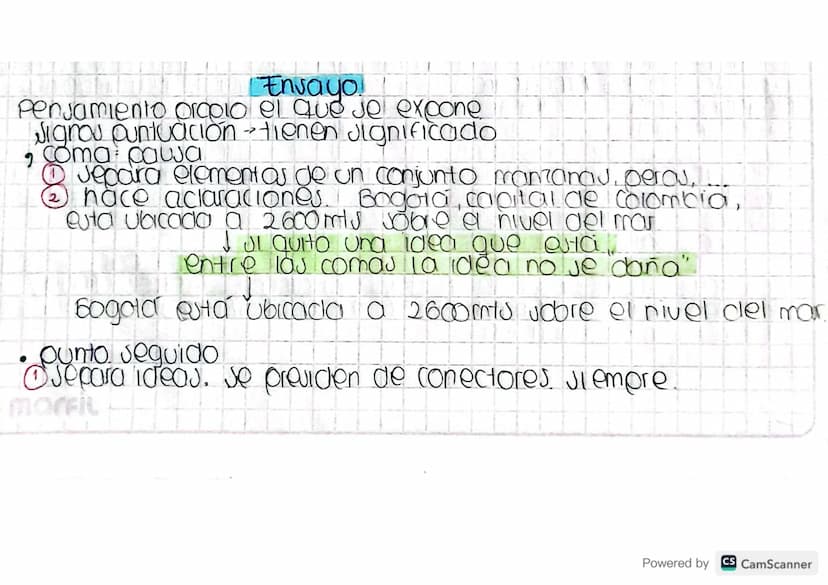 Ensayo
Pensamiento propio el que se expone
signos puntuación → tienen significado
, coma: pausa
① separa elementos de un conjunto manzanas, peras, ...
② hace aclaraciones. Bogotá, capital de Colombia,
esta ubicada a 2600mts sobre el nivel del mar
↓ si quito una idea que está
entre las comas la idea no se daña"
↓
Bogotá está ubicada a 2600mts sobre el nivel del mar
. punto seguido
① separa ideas. se presiden de conectores siempre.
marfil
Powered by CS CamScanner